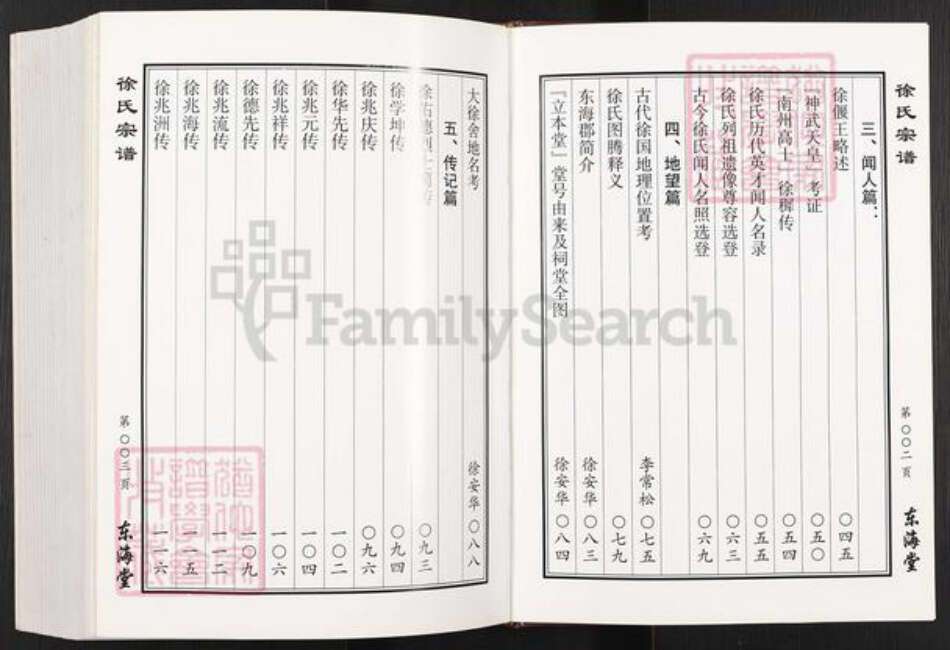 徐氏宗谱
三、闻人篇：
徐偃王略述 〇四五
神武天皇 考证 〇五〇
南州高士 徐穉传 〇五四
徐氏历代英才闻人名录 〇五五
徐氏列祖遗像尊容选登 〇六三
古今徐氏闻人名照选登 〇六九
四、地望篇
古代徐国地理位置考 李常松 〇七五
徐氏图腾释义 〇七九
东海郡简介 徐安华 〇八三
「立本堂」堂号由来及祠堂全图 徐安华 〇八四
第〇〇二页
东海堂
徐氏宗谱
大徐舍地名考 徐安华 〇八八
五、传记篇
〇九三
徐学坤传 〇九四
徐兆庆传 〇九六
徐华先传 一〇二
徐兆元传 一〇四
徐兆祥传 一〇六
徐德先传 一〇九
徐兆流传 一一二
徐兆海传 一一五
徐兆洲传 一一六
第〇〇三页
东海堂
FamilySearch